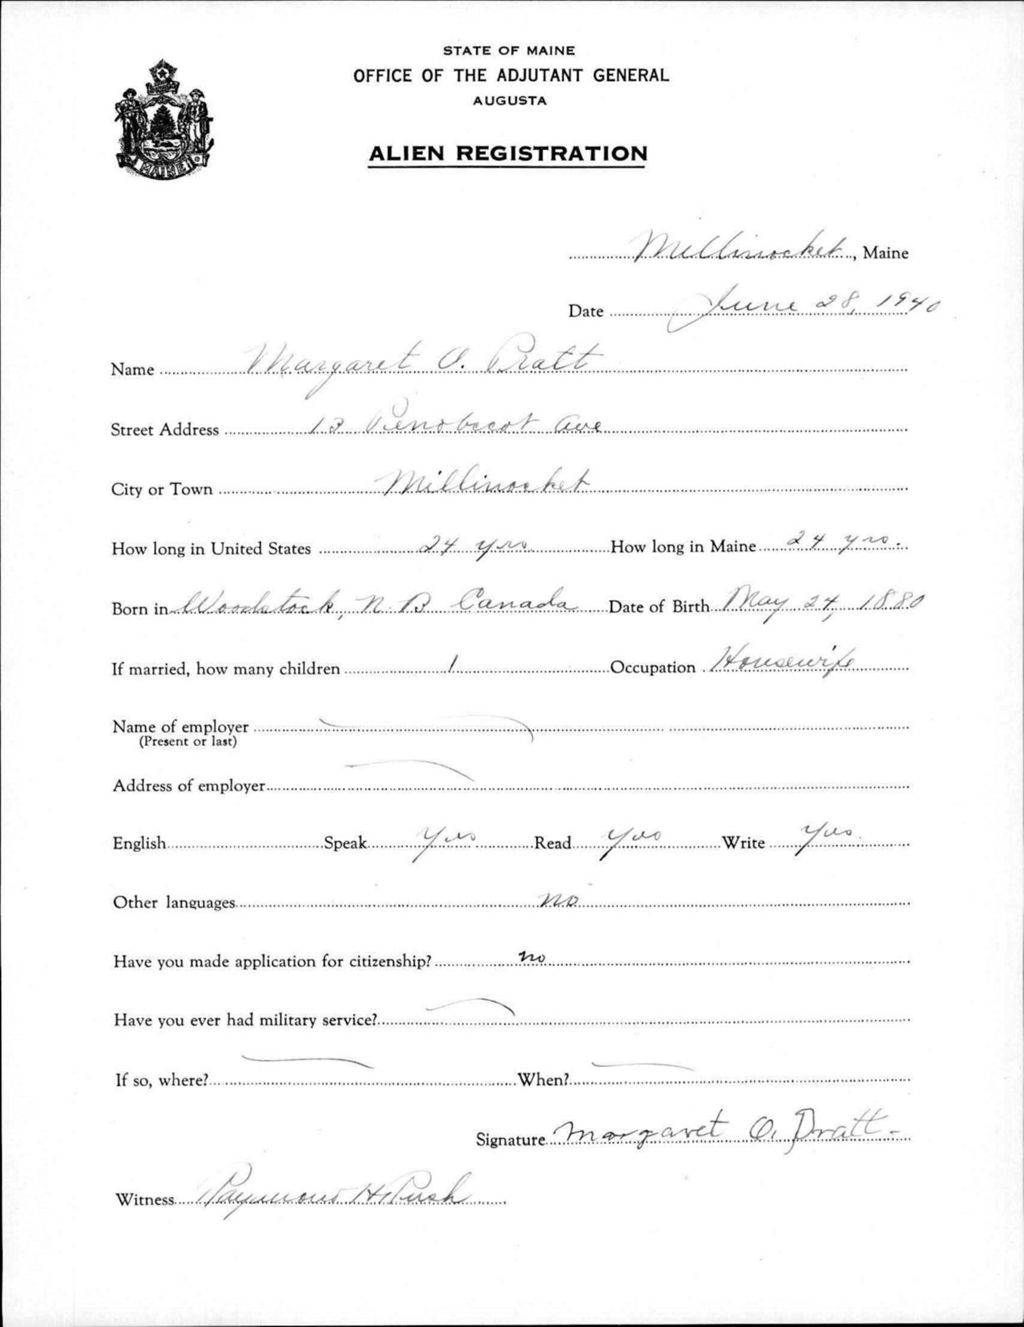 STATE OF MAINE
OFFICE OF THE ADJUTANT GENERAL
AUGUSTA
ALIEN REGISTRATION
MAINE
Millinocket, Maine
Date June 28, 1940
Name Margaret O. Pratt
Street Address 13 Penobscot Ave
City or Town Millinocket
How long in United States 24 yrs How long in Maine 24 yrs.
Born in Woodstock, N B Canada Date of Birth May 24, 1880
If married, how many children 1 Occupation Housewife
Name of employer
(Present or last)
Address of employer
English Speak Yes Read Yes Write Yes
Other languages no
Have you made application for citizenship? no
Have you ever had military service?
If so, where? When?
Signature Margaret O. Pratt
Witness Raymond H. Rush